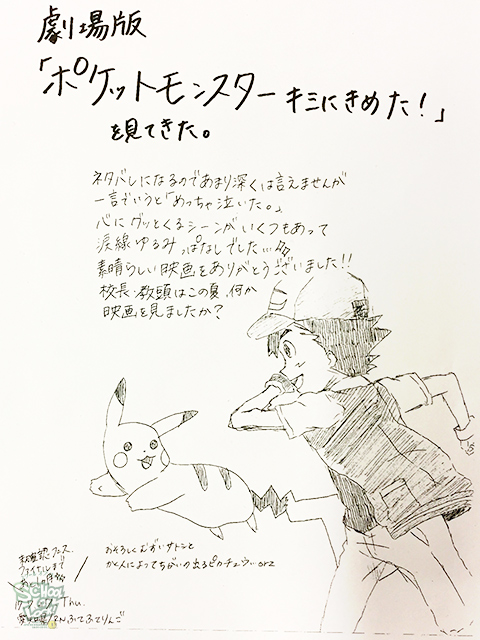 劇場版
「ポケットモンスター キミにきめた!」
を見てきた。
ネタバレになるのであまり深くは言えませんが
一言でいうと「めっちゃ泣いた。」
心にグッとくるシーンがいくつもあって
涙線ゆるみっぱなしでした…
素晴らしい映画をありがとうございました!!
校長、教頭はこの夏、何か
映画を見ましたか?
おそろしくむずいサトシと
かく人によってちがいの出るピカチュウ… orz
ファイナルまで
Thu.